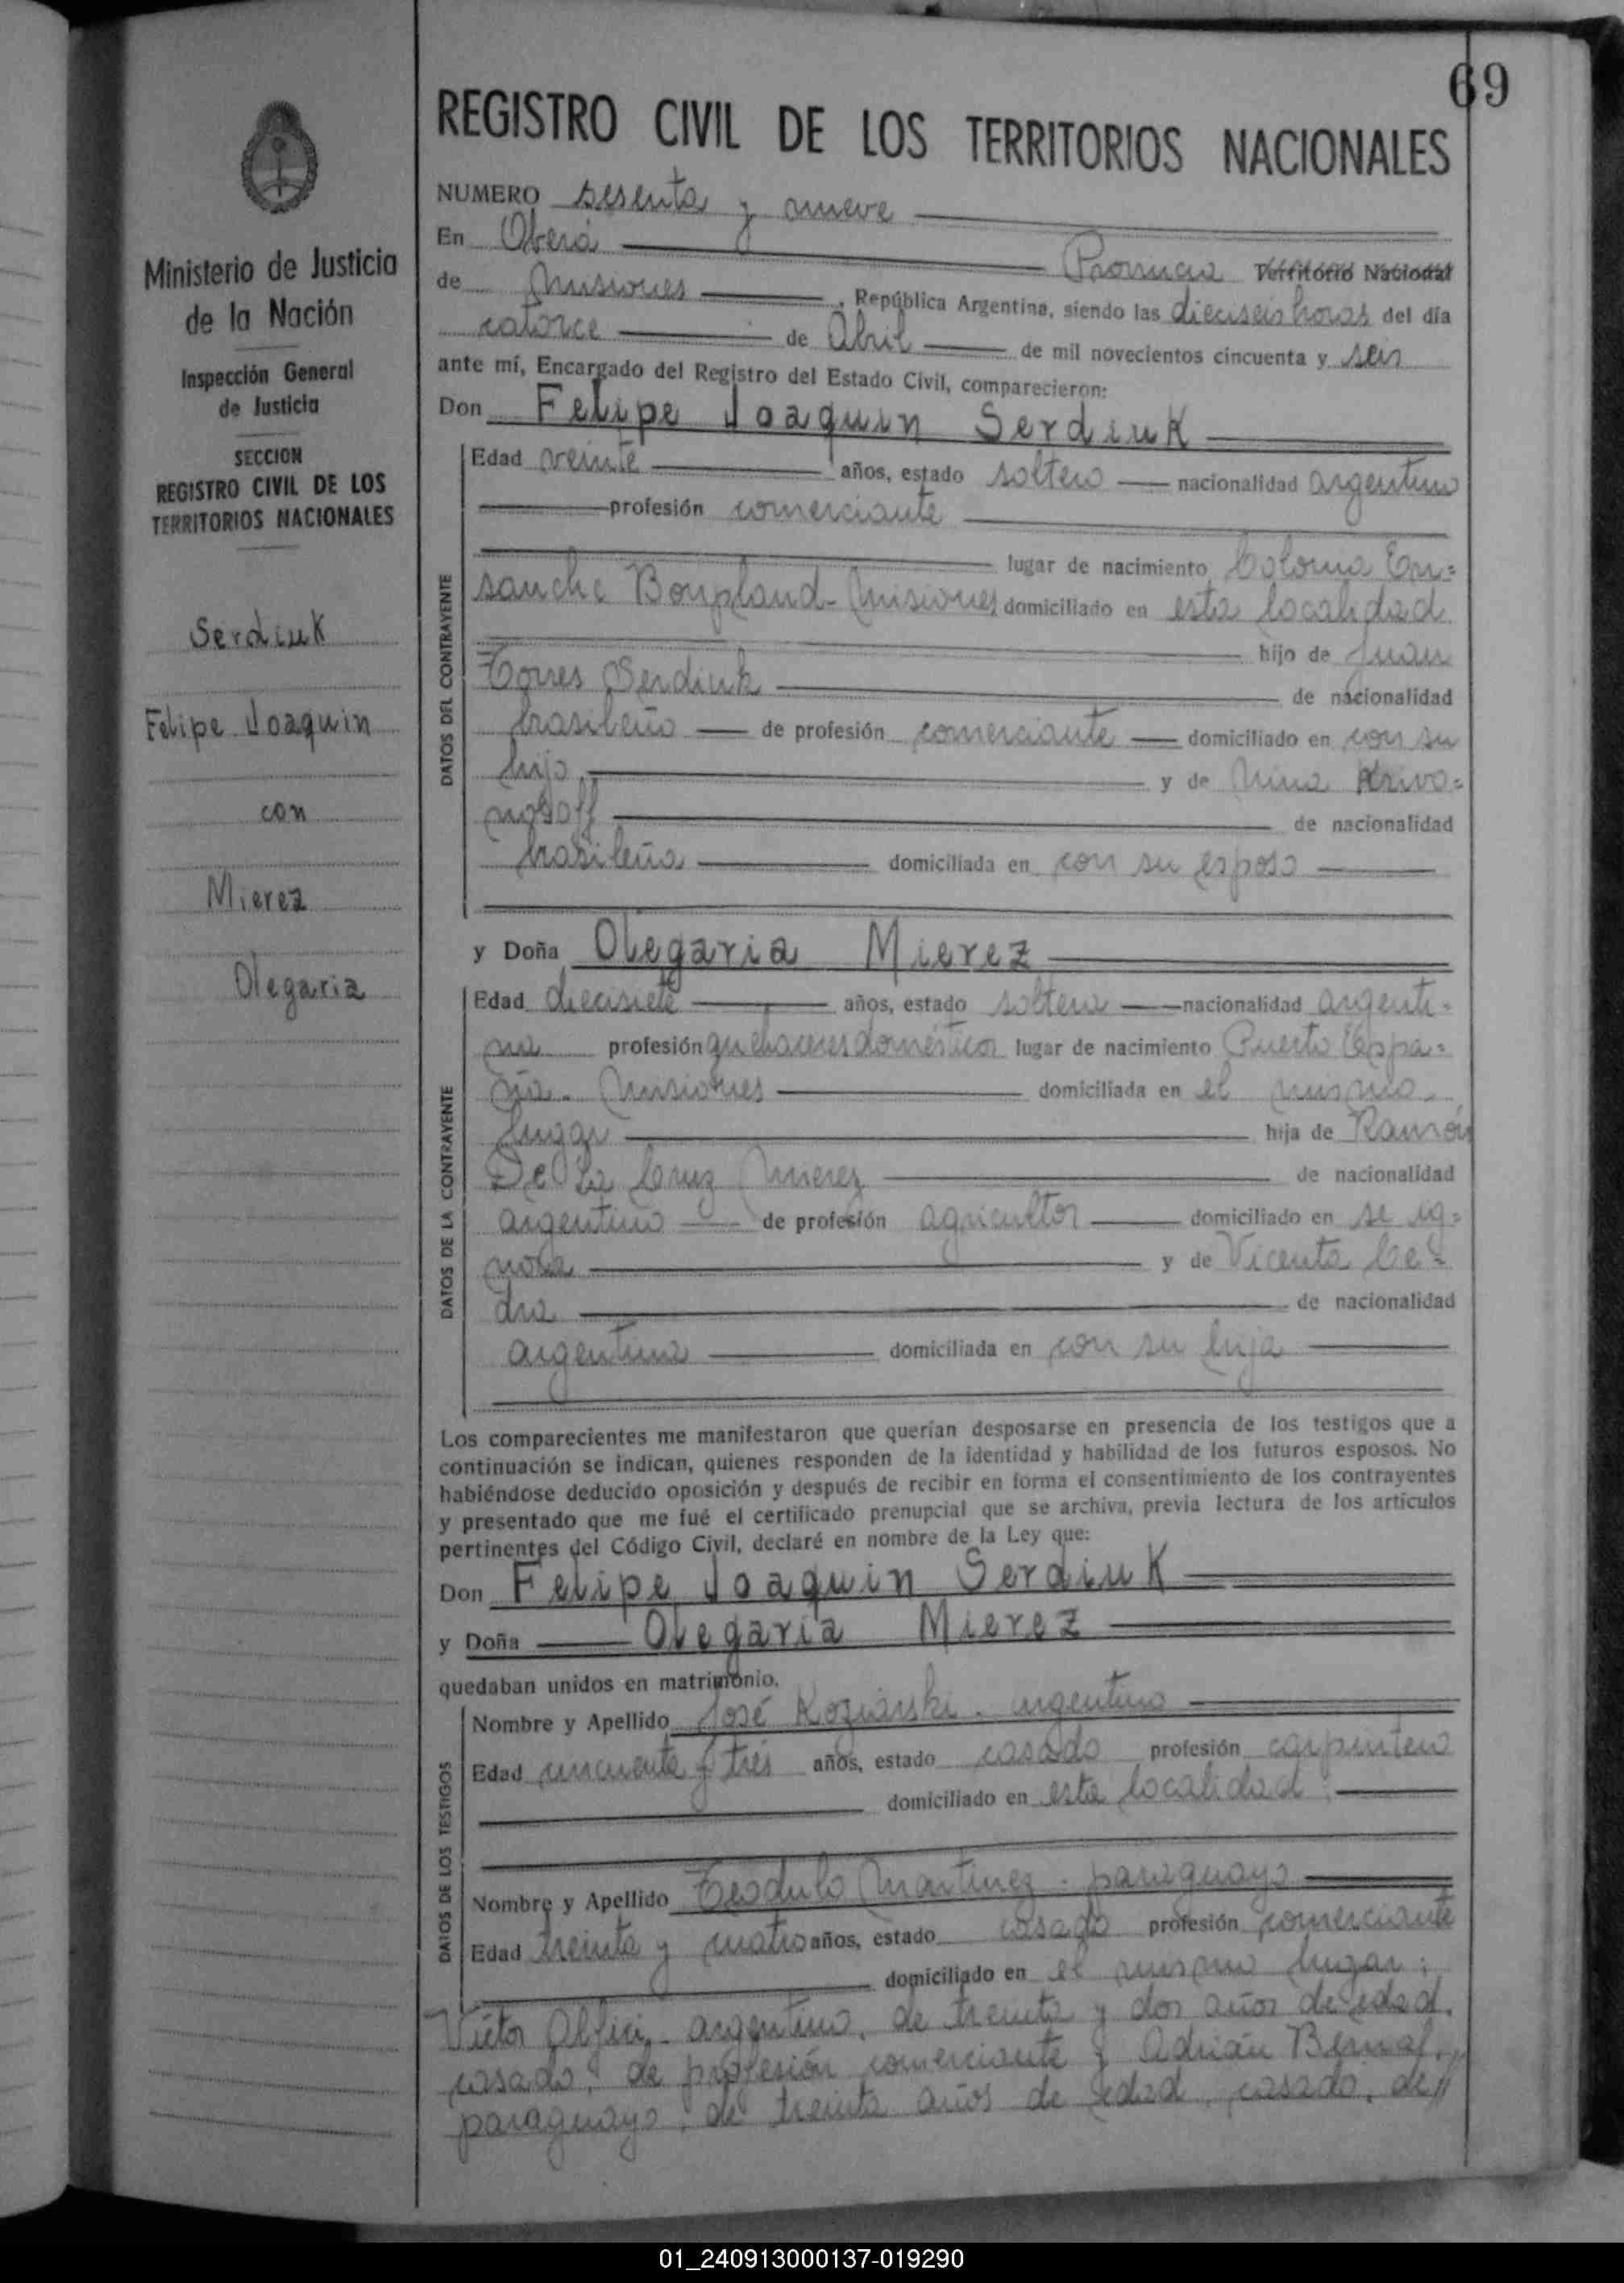 69
REGISTRO CIVIL DE LOS TERRITORIOS NACIONALES
Ministerio de Justicia
de la Nación
Inspección General
de Justicia
SECCION
REGISTRO CIVIL DE LOS
TERRITORIOS NACIONALES
Serdiuk
Felipe Joaquin
con
Mierez
Olegaria
NUMERO sesenta y nueve
En Oberá Provincia Territorio Nacional
de Misiones, República Argentina, siendo las dieciseis horas del día
catorce de Abril de mil novecientos cincuenta y seis
ante mí, Encargado del Registro del Estado Civil, comparecieron:
Don Felipe Joaquin Serdiuk
DATOS DEL CONTRAYENTE
Edad veinte años, estado soltero nacionalidad argentino
profesión comerciante
lugar de nacimiento Colonia En=
sanche Bonpland-Misiones domiciliado en esta localidad
hijo de Juan
Torres Serdiuk de nacionalidad
brasileño de profesión comerciante domiciliado en con su
hijo y de Nina Krivo=
nosoff de nacionalidad
brasileña domiciliada en con su esposo
y Doña Olegaria Mierez
DATOS DE LA CONTRAYENTE
Edad diecisiete años, estado soltera nacionalidad argenti-
na profesión quehaceres domésticos lugar de nacimiento Puerto Espa=
ña- Misiones domiciliada en el mismo
lugar hija de Ramón
De La Cruz Mierez de nacionalidad
argentino de profesión agricultor domiciliado en se ig=
nora y de Vicenta
de nacionalidad
argentina domiciliada en con su hija
Los comparecientes me manifestaron que querían desposarse en presencia de los testigos que a
continuación se indican, quienes responden de la identidad y habilidad de los futuros esposos. No
habiéndose deducido oposición y después de recibir en forma el consentimiento de los contrayentes
y presentado que me fué el certificado prenupcial que se archiva, previa lectura de los artículos
pertinentes del Código Civil, declaré en nombre de la Ley que:
Don Felipe Joaquin Serdiuk
y Doña Olegaria Mierez
quedaban unidos en matrimonio.
DATOS DE LOS TESTIGOS
Nombre y Apellido José Koziarski - argentino
Edad cincuenta y tres años, estado casado profesión carpintero
domiciliado en esta localidad;
Nombre y Apellido Teodulo Martinez - paraguayo
Edad treinta y cuatro años, estado casado profesión comerciante
domiciliado en el mismo lugar;
Victor Alfici, argentino, de treinta y dos años de edad,
casado, de profesión comerciante y Adrián Bernal,
paraguayo, de treinta años de edad, casado, de//
01_240913000137-019290